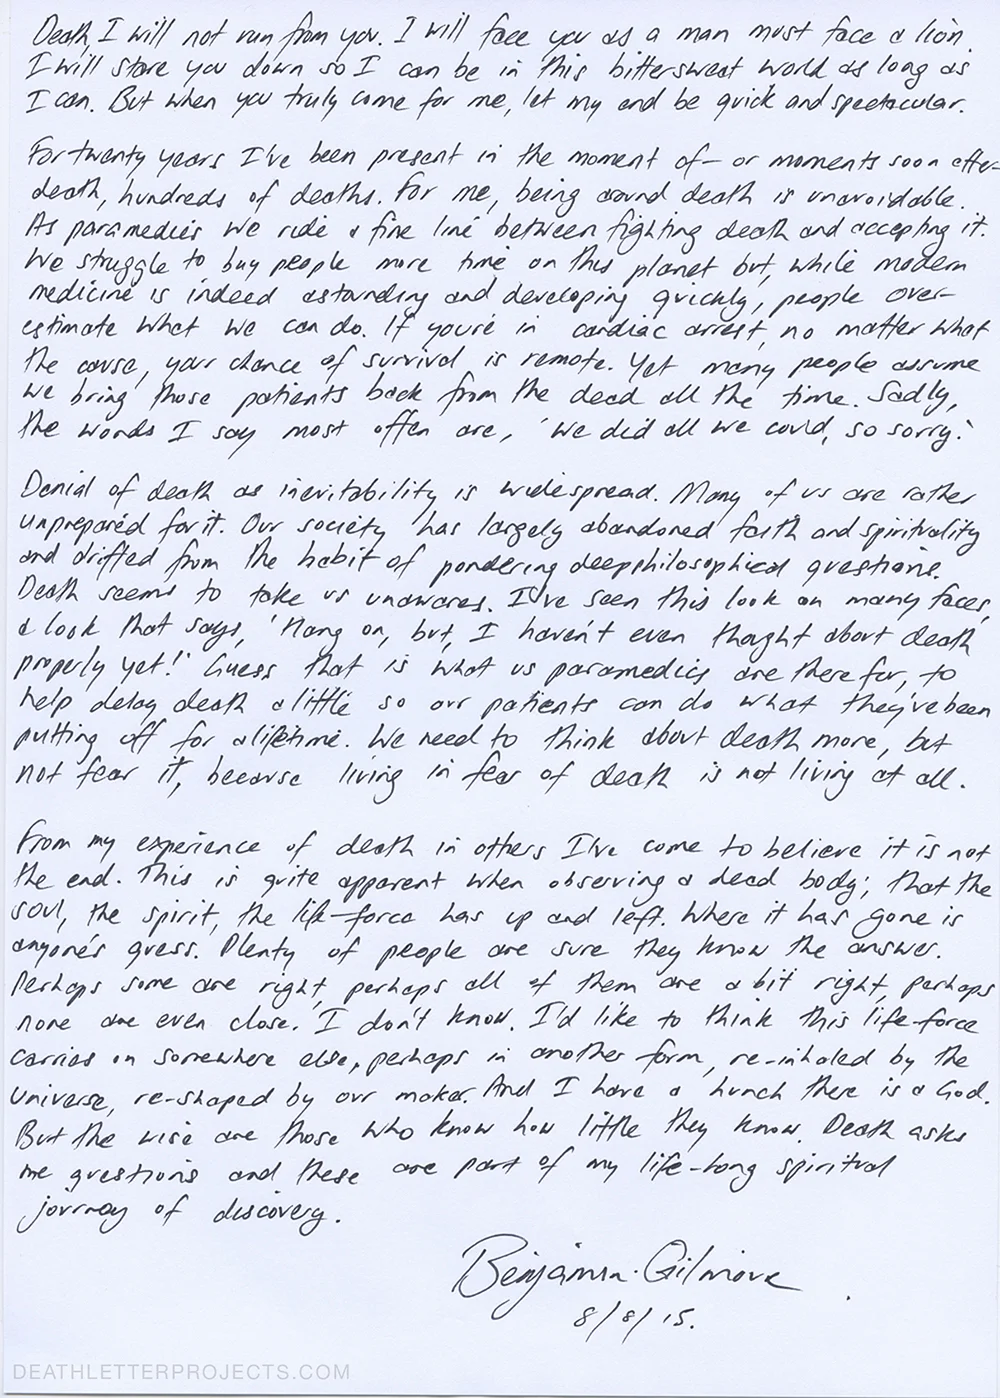 Death, I will not run from you. I will face you as a man must face a lion.
I will stare you down so I can be in this bittersweet world as long as
I can. But when you truly come for me, let my end be quick and spectacular.
For twenty years I've been present in the moment of – or moments soon after –
death, hundreds of deaths. For me, being around death is unavoidable.
As paramedics we ride a fine line between fighting death and accepting it.
We struggle to buy people more time on this planet but, while modern
medicine is indeed astounding and developing quickly, people over-
estimate what we can do. If you're in cardiac arrest, no matter what
the cause, your chance of survival is remote. Yet many people assume
we bring those patients back from the dead all the time. Sadly,
the words I say most often are, 'We did all we could, so sorry.'
Denial of death as inevitability is widespread. Many of us are rather
unprepared for it. Our society has largely abandoned faith and spirituality
and drifted from the habit of pondering deep philosophical questions.
Death seems to take us unawares. I've seen this look on many faces,
a look that says, 'Hang on, but, I haven't even thought about death
properly yet!' Guess that is what us paramedics are there for, to
help delay death a little so our patients can do what they've been
putting off for a lifetime. We need to think about death more, but
not fear it, because living in fear of death is not living at all.
From my experience of death in others I've come to believe it is not
the end. This is quite apparent when observing a dead body; that the
soul, the spirit, the life-force has up and left. Where it has gone is
anyone's guess. Plenty of people are sure they know the answer.
Perhaps some are right, perhaps all of them are a bit right, perhaps
none are even close. I don't know. I'd like to think this life-force
carries on somewhere else, perhaps in another form, re-inhaled by the
universe, re-shaped by our maker. And I have a hunch there is a God.
But the wise are those who know how little they know. Death asks
me questions and these are part of my life-long spiritual
journey of discovery.
Benjamin Gilmour
8/8/15.
DEATHLETTERPROJECTS.COM